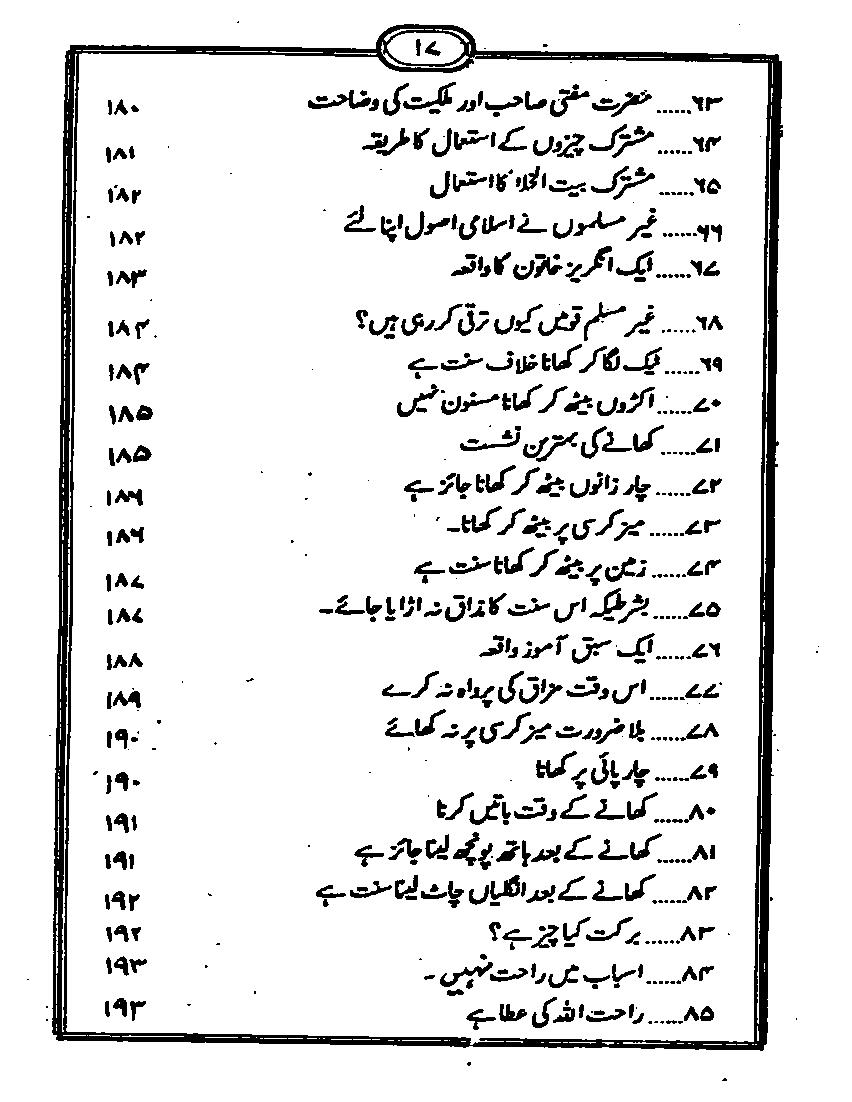 ۱۷
۶۳...... حضرت مفتی صاحب اور ملکیت کی وضاحت ۱۸۰
۶۴...... مشترک چیزوں کے استعمال کا طریقہ ۱۸۱
۶۵...... مشترک بیت الخلاء کا استعمال ۱۸۲
۶۶...... غیر مسلموں نے اسلامی اصول اپنا لئے ۱۸۲
۶۷...... ایک انگریز خاتون کا واقعہ ۱۸۳
۶۸...... غیر مسلم قومیں کیوں ترقی کر رہی ہیں؟ ۱۸۴
۶۹...... ٹیک لگا کر کھانا خلاف سنت ہے ۱۸۴
۷۰...... اکڑوں بیٹھ کر کھانا مسنون نہیں ۱۸۵
۷۱...... کھانے کی بہترین نشست ۱۸۵
۷۲...... چار زانوں بیٹھ کر کھانا جائز ہے ۱۸۶
۷۳...... میز کرسی پر بیٹھ کر کھانا۔ ۱۸۶
۷۴...... زمین پر بیٹھ کر کھانا سنت ہے ۱۸۷
۷۵...... بشرطیکہ اس سنت کا مذاق نہ اڑایا جائے۔ ۱۸۷
۷۶...... ایک سبق آموز واقعہ ۱۸۸
۷۷...... اس وقت مزاق کی پرواہ نہ کرے ۱۸۹
۷۸...... بلا ضرورت میز کرسی پر نہ کھائے ۱۹۰
۷۹...... چارپائی پر کھانا ۱۹۰
۸۰...... کھانے کے وقت باتیں کرنا ۱۹۱
۸۱...... کھانے کے بعد ہاتھ پونچھ لینا جائز ہے ۱۹۱
۸۲...... کھانے کے بعد انگلیاں چاٹ لینا سنت ہے ۱۹۲
۸۳...... برکت کیا چیز ہے؟ ۱۹۲
۸۴...... اسباب میں راحت نہیں۔ ۱۹۳
۸۵...... راحت اللہ کی عطا ہے ۱۹۳